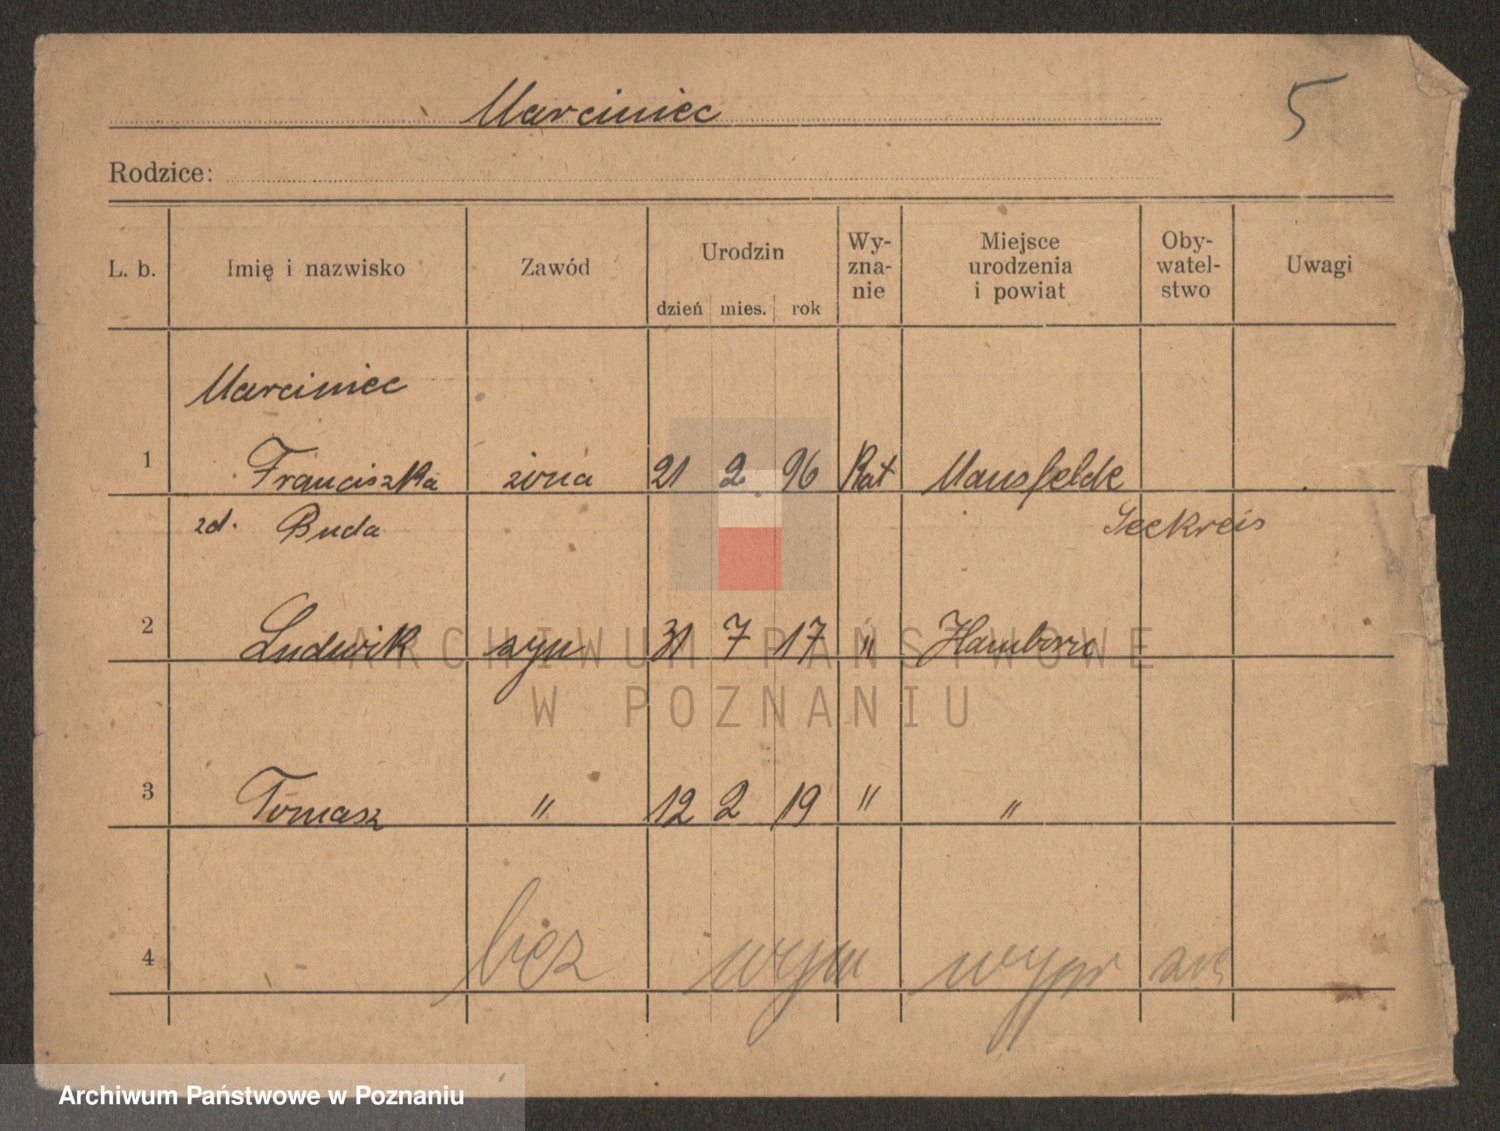 Marciniec
5
Rodzice:
L. b. Imię i nazwisko Zawód Urodzin dzień mies. rok Wy-zna-nie Miejsce urodzenia i powiat Oby-watel-stwo Uwagi
Marciniec
1 Franciszka żona 21 2. 96 Kat Mansfelde
zd. Buda Seekreis
2 Ludwik syn 31 7 17 " Hamborn
3 Tomasz " 12 2 19 " "
4 bez wym
ARCHIWUM PAŃSTWOWE
W POZNANIU
Archiwum Państwowe w Poznaniu